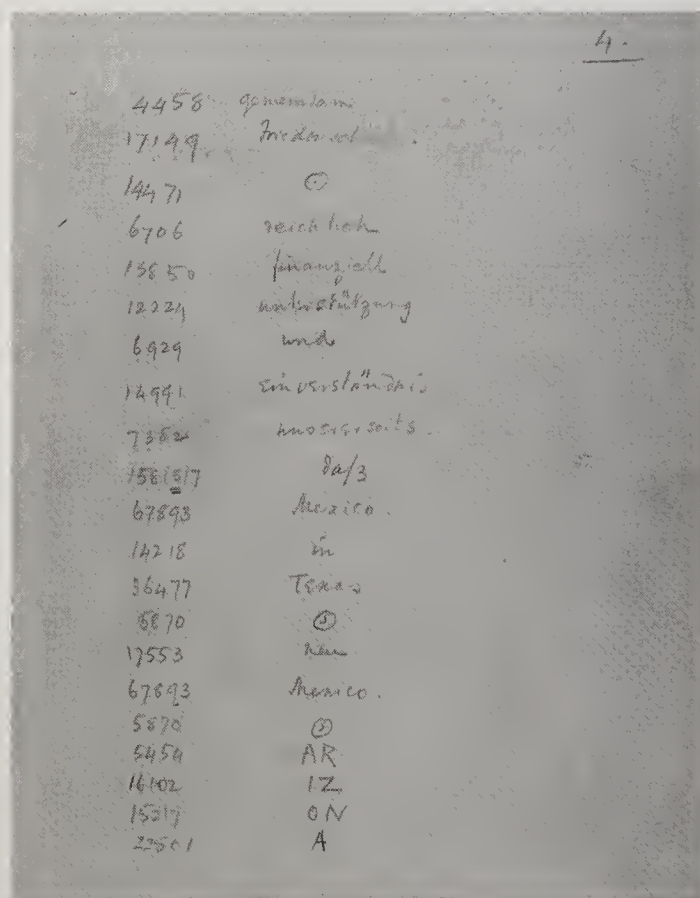 4.
4458 gemeinsam
17149 Friedenschl
14471 ⊙
6706 reichlich
13850 finanziell
12224 unterstützung
6929 und
14991 einverständnis
7382 unsererseits.
158(5)7 daß
67893 Mexico.
14218 in
36477 Texas
5870 ⊙
17553 neu
67893 Mexico.
5870 ⊙
5454 AR
16102 IZ
15217 ON
22801 A